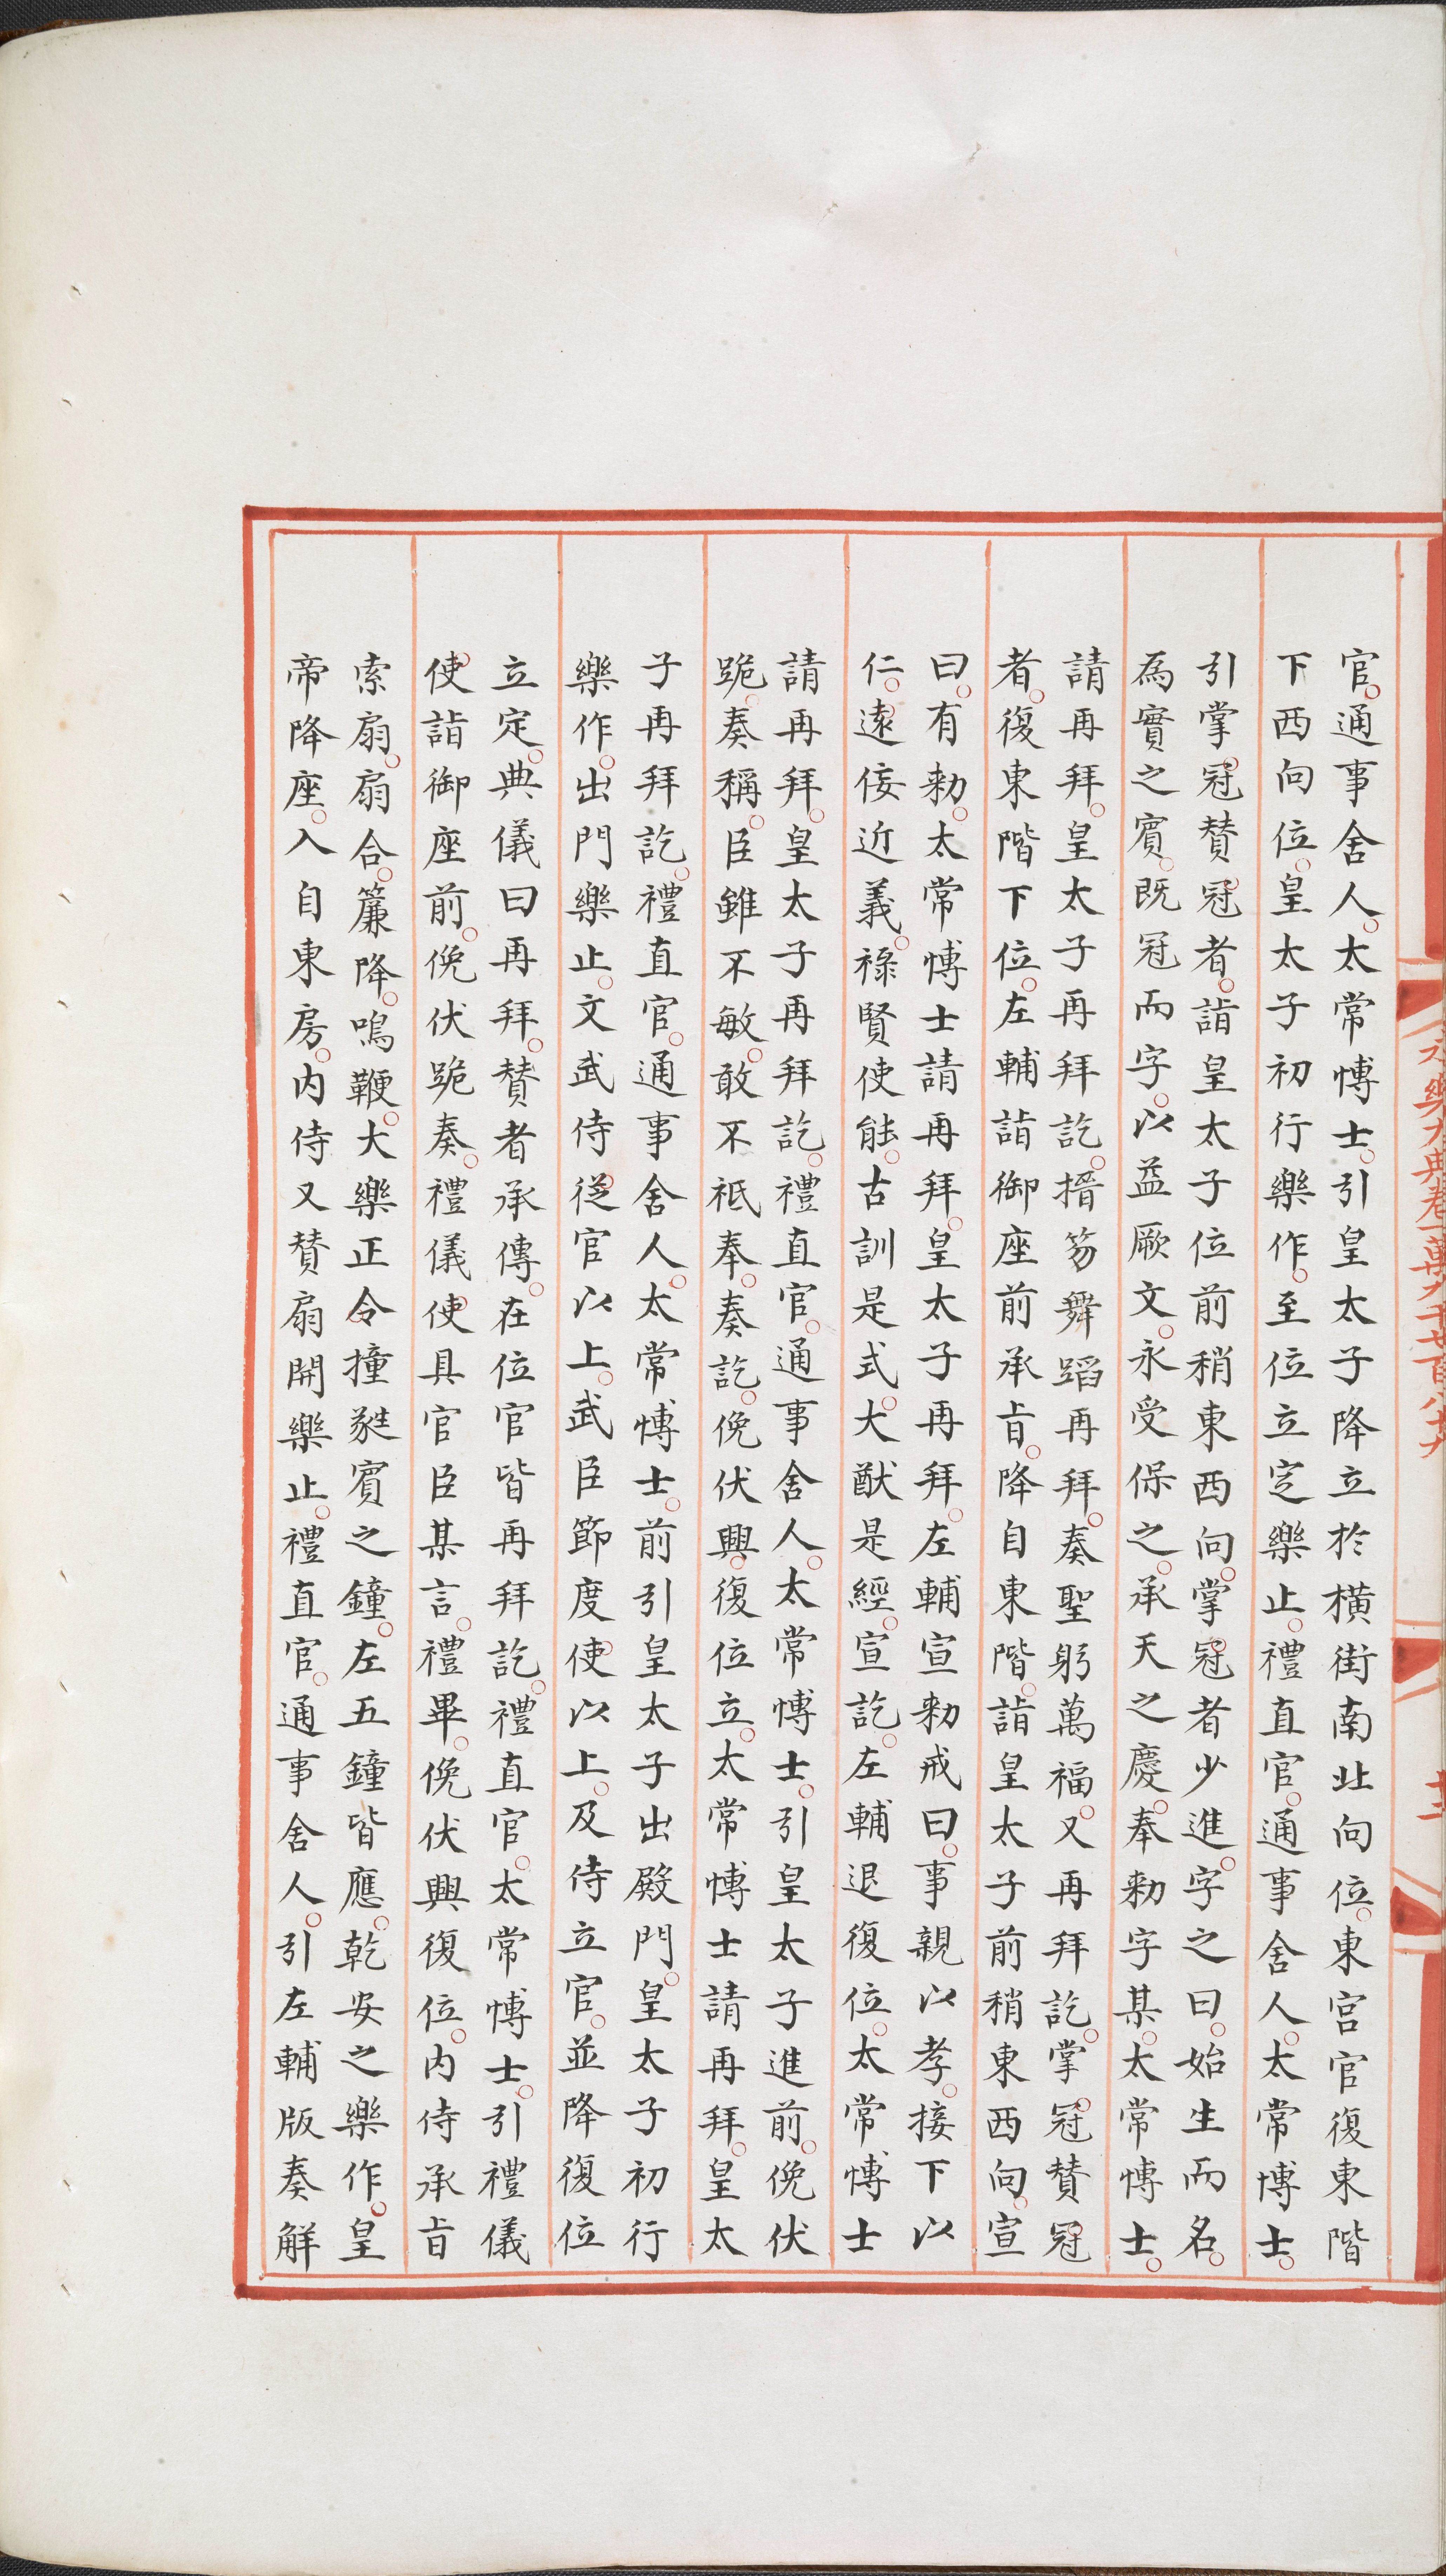 官通事舍人太常博士引皇太子降立於橫街南北向位東宮官復東階
下西向位皇太子初行樂作至位立定樂止禮直官通事舍人太常博士
引掌冠贊冠者詣皇太子位前稍東西向掌冠者少進字之曰始生而名
為實之賓既冠而字以益厥文永受保之承天之慶奉勑字某太常博士
請再拜皇太子再拜訖搢笏舞蹈再拜奏聖躬萬福又再拜訖掌冠贊冠
者復東階下位左輔詣御座前承旨降自東階詣皇太子前稍東西向宣
曰有勑太常博士請再拜皇太子再拜左輔宣勑戒曰事親以孝接下以
仁遠佞近義祿賢使能古訓是式大猷是經宣訖左輔退復位太常博士
請再拜皇太子再拜訖禮直官通事舍人太常博士引皇太子進前俛伏
跪奏稱臣雖不敏敢不祇奉奏訖俛伏興復位立太常博士請再拜皇太
子再拜訖禮直官通事舍人太常博士前引皇太子出殿門皇太子初行
樂作出門樂止文武侍從官以上武臣節度使以上及侍立官並降復位
立定典儀曰再拜贊者承傳在位官皆再拜訖禮直官太常博士引禮儀
使詣御座前俛伏跪奏禮儀使具官臣某言禮畢俛伏興復位内侍承旨
索扇扇合簾降鳴鞭大樂正令撞蕤賓之鐘左五鐘皆應乾安之樂作皇
帝降座入自東房内侍又贊扇開樂止禮直官通事舍人引左輔版奏解
永樂大典卷一萬九千七百八十九
十二